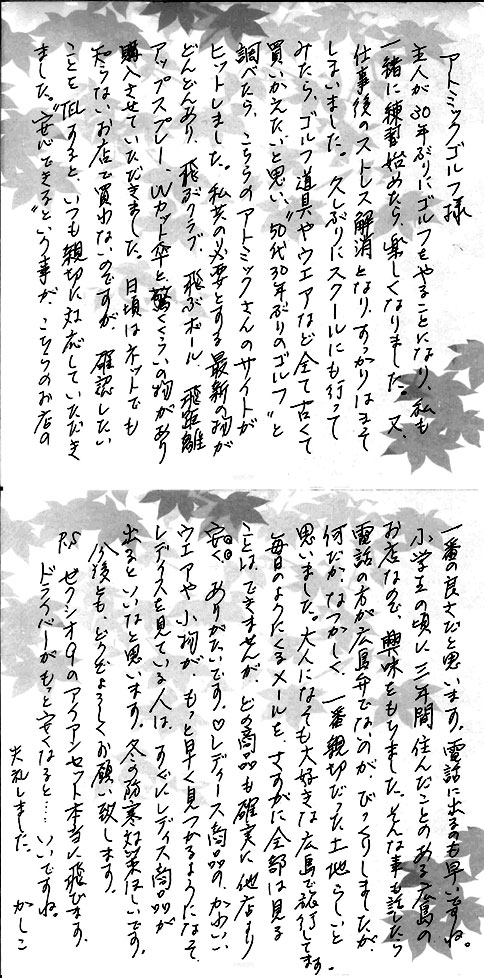 アトミックゴルフ様
主人が30年ぶりにゴルフをやることになり、私も
一緒に練習始めたら、楽しくなりました。又、
仕事後のストレス解消となり、すっかりはまって
しまいました。久しぶりにスクールにも行って
みたら、ゴルフ道具やウエアなど全て古くて
買いかえたいと思い、"50代30年ぶりのゴルフ"と
調べたら、こちらのアトミックさんのサイトが
ヒットしました。私共の必要とする最新の物が
どんどんあり、飛ぶクラブ、飛ぶボール、飛距離
アップスプレー、UVカット傘と、驚くくらいの物があり
購入させていただきました。日頃はネットでも
知らないお店で買わないのですが、確認したい
ことをTELすると、いつも親切に対応していただき
ました。"安心できる"という事が、こちらのお店の
一番の良さだと思います。電話に出るのも早いですね。
小学生の頃に三年間住んだことのある広島の
お店なので、興味をもちました。そんな事も話したら
電話の方が広島弁でないのが、びっくりしましたが、
何だか、なつかしく、一番親切だった土地らしいと
思いました。大人になっても大好きな広島で旅行してます。
毎日のようにくるメールを、さすがに全部は見る
ことはできませんが、どの商品も確実に他店より
安く、ありがたいです。♡レディース商品の、かわいい
ウエアや小物が、もっと早く見つかるようになって、
レディスを見ている人は、すぐにレディス商品が
出るといいなと思います。冬の防寒対策ほしいです。
今後とも、どうぞよろしくお願い致します。
P.S ゼクシオ9のアイアンセット本当に飛びます。
ドライバーがもっと安くなると……いいですね。
失礼しました。 かしこ